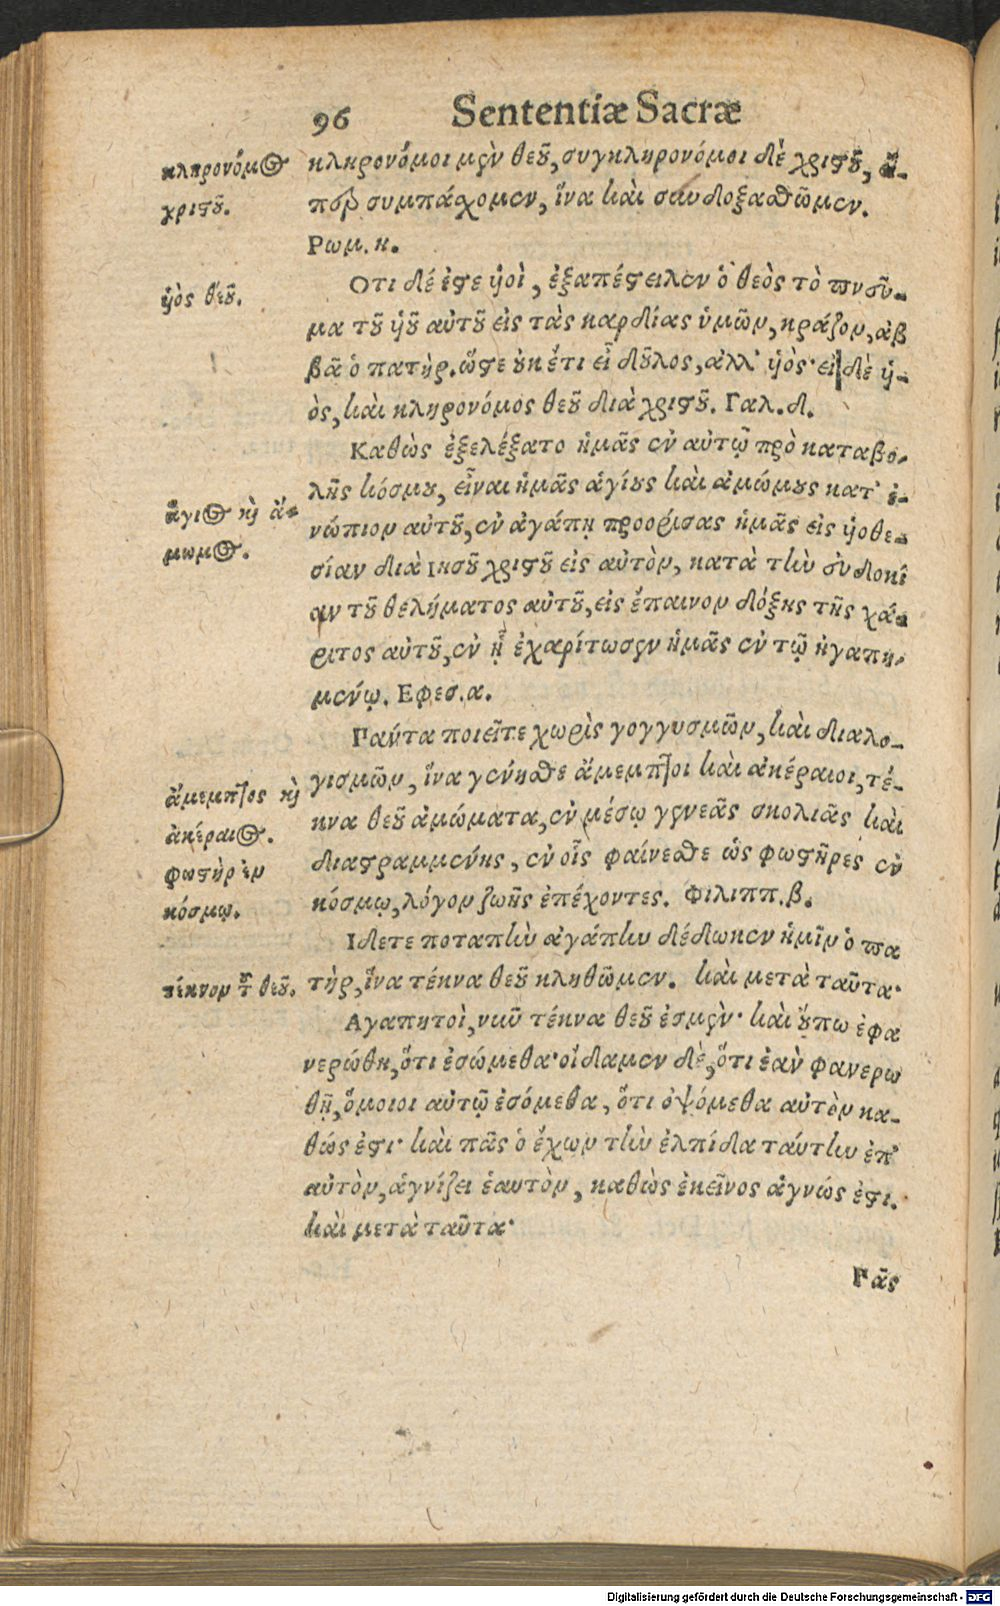 96 Sententiæ Sacræ
κληρονόμος
χριστοῦ.
κληρονόμοι μὲν θεοῦ, συγκληρονόμοι δὲ χριστοῦ, εἴ-
περ συμπάχομεν, ἵνα καὶ συνδοξασθῶμεν.
Ρωμ. η.
υἱὸς θεοῦ.
Οτι δέ ἐστε υἱοὶ, ἐξαπέστειλεν ὁ θεὸς τὸ πνεῦ-
μα τοῦ υἱοῦ αὐτοῦ εἰς τὰς καρδίας ὑμῶν, κράζον, ἀβ
βᾶ ὁ πατὴρ. ὥστε οὐκ ἔτι εἶ δοῦλος, ἀλλ' υἱὸς· εἰ δὲ υἱ-
ὸς, καὶ κληρονόμος θεοῦ διὰ χριστοῦ. Γαλ. δ.
Καθὼς ἐξελέξατο ἡμᾶς ἐν αὐτῷ πρὸ καταβο-
λῆς κόσμου, εἶναι ἡμᾶς ἁγίους καὶ ἀμώμους κατ' ἐ-
ἅγιος καὶ ἄ-
μωμος.
νώπιον αὐτοῦ, ἐν ἀγάπῃ προορίσας ἡμᾶς εἰς υἱοθε-
σίαν διὰ Ιησοῦ χριστοῦ εἰς αὐτὸν, κατὰ τὴν εὐδοκί
αν τοῦ θελήματος αὐτοῦ, εἰς ἔπαινον δόξης τῆς χά-
ριτος αὐτοῦ, ἐν ᾗ ἐχαρίτωσεν ἡμᾶς ἐν τῷ ἠγαπη-
μένῳ. Εφεσ. α.
Πάντα ποιεῖτε χωρὶς γογγυσμῶν, καὶ διαλο-
γισμῶν, ἵνα γένησθε ἄμεμπτοι καὶ ἀκέραιοι, τέ-
ἄμεμπτος καὶ
ἀκέραιος.
φωστὴρ ἐν
κόσμῳ.
κνα θεοῦ ἀμώματα, ἐν μέσῳ γενεᾶς σκολιᾶς καὶ
διαστραμμένης, ἐν οἷς φαίνεσθε ὡς φωστῆρες ἐν
κόσμῳ, λόγον ζωῆς ἐπέχοντες. Φιλιππ. β.
Ιδετε ποταπὴν ἀγάπην δέδωκεν ἡμῖν ὁ πα
τέκνον τοῦ θεοῦ.
τὴρ, ἵνα τέκνα θεοῦ κληθῶμεν. καὶ μετὰ ταῦτα·
Αγαπητοὶ, νῦν τέκνα θεοῦ ἐσμὲν· καὶ οὔπω ἐφα
νερώθη, ὅτι ἐσώμεθα· οἴδαμεν δὲ, ὅτι ἐὰν φανερω
θῇ, ὅμοιοι αὐτῷ ἐσόμεθα, ὅτι ὀψόμεθα αὐτὸν κα-
θώς ἐστι· καὶ πᾶς ὁ ἔχων τὴν ἐλπίδα ταύτην ἐπ'
αὐτὸν, ἁγνίζει ἑαυτὸν, καθὼς ἐκεῖνος ἁγνώς ἐστι.
καὶ μετὰ ταῦτα·
Πᾶς
Digitalisierung gefördert durch die Deutsche Forschungsgemeinschaft - DFG